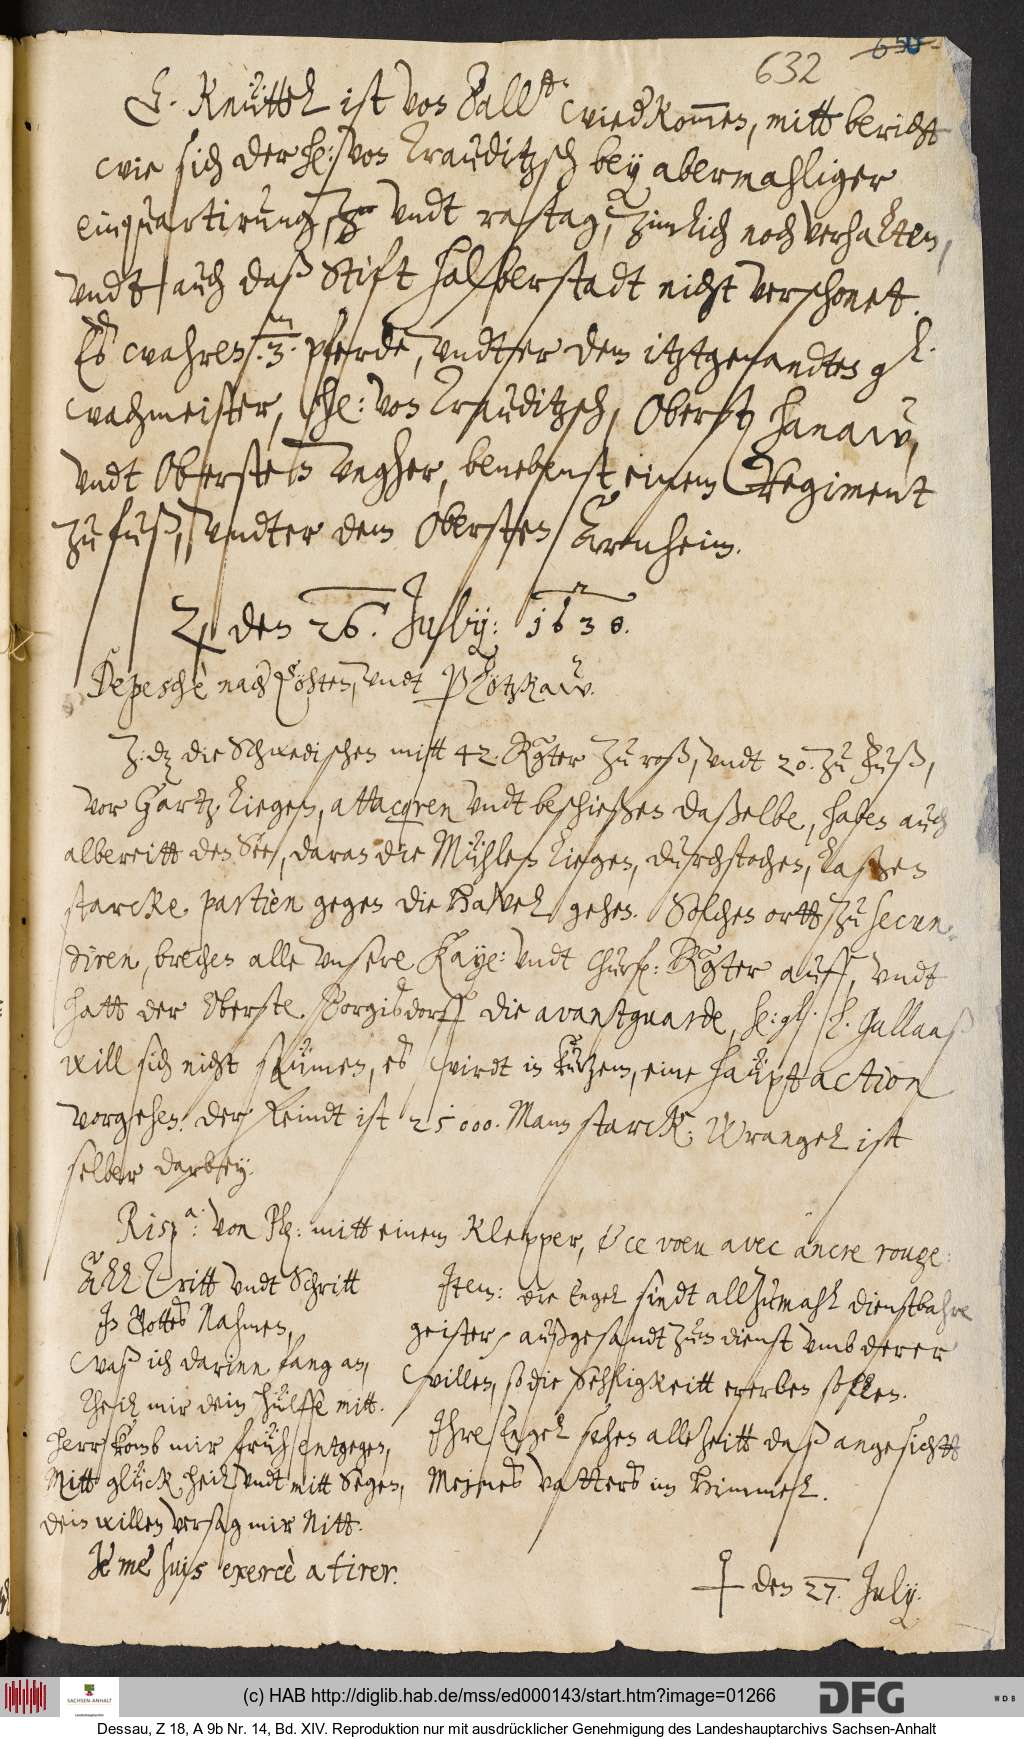 632 650
C. Knüttel ist von Ball: wiedkommen, mitt bericht
wie sich der he: von Trauditzsch bey abermahliger
einquartirung, vndt rastag, zimlich noch verhalten,
vndt auch daß Stift Halberstadt nicht verschonet.
Es wahren .3. pferde, vndter dem itztgenandten g.
wachmeister, he: von Trauditzsch, Oberst Hanaw,
vndt Obersten Vngher, benebenst einem Regiment
zu fuß, vndter dem Obersten Arenheim.
♃ den 26. July: 1638.
Depesche nach Cöhten, vndt Plötzkaw.
Z: dz die Schwedischen mitt 42 Rgter zu roß, vndt 20. zu Fuß,
vor Gartz liegen, attacqren vndt beschießen daßelbe, haben auch
albereitt den See, daran die Mühlen liegen, durchstochen, laßen
starcke partien gegen die Havel gehen. Solchen ortt zu secun-
diren, brechen alle vnsere Kaye: vndt Churf: Rgter auff, vndt
hatt der Oberste Borgisdorff die avantguarde, he: gl. h. Gallaaß
will sich nicht säumen, es wirdt in kurtzem, eine haüptaction
vorgehen. der Feindt ist 25000. Mann starck. Wrangel ist
selber darbey.
Risp.a: von Plz: mitt einem Klepper, & ce voeu avec ancre rouge:
All Tritt vndt Schritt
In Gottes Nahmen,
waß ich darinn fang an,
Theil mir dein hülffe mitt.
Herr komb mir früh entgegen,
Mitt glück, heil, vndt mitt Segen,
dein willen versag mir Nitt.
Je me suis exercè a tirer.
Item: die Engel sindt allzumahl dienstbahre
geister, außgesandt zum dienst vmb derer
willen, so die Sehligkeitt ererben sollen.
Ihre Engel sehen allezeitt daß angesichtt
Meines Vatters im Himmel.
♀ den 27. July.
(c) HAB http://diglib.hab.de/mss/ed000143/start.htm?image=01266
SACHSEN-ANHALT
DFG
WDB
Dessau, Z 18, A 9b Nr. 14, Bd. XIV. Reproduktion nur mit ausdrücklicher Genehmigung des Landeshauptarchivs Sachsen-Anhalt